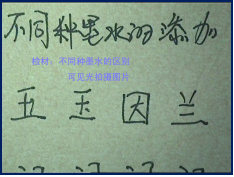 不同种墨水的添加
检材：不同种墨水的区别
可见光拍摄图片
五 玉 因 兰